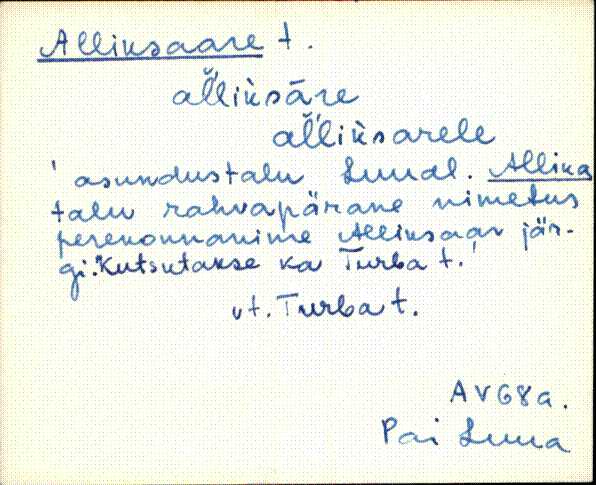 Alliksaare t.
al̆liksāre
al̆liksarele
' asundustalu Luual. Allika
talu rahvapärane nimetus
perekonnanime Alliksaar jär-
gi. Kutsutakse ka Turba t.'
vt. Turba t.
AV68a.
Pai Luua